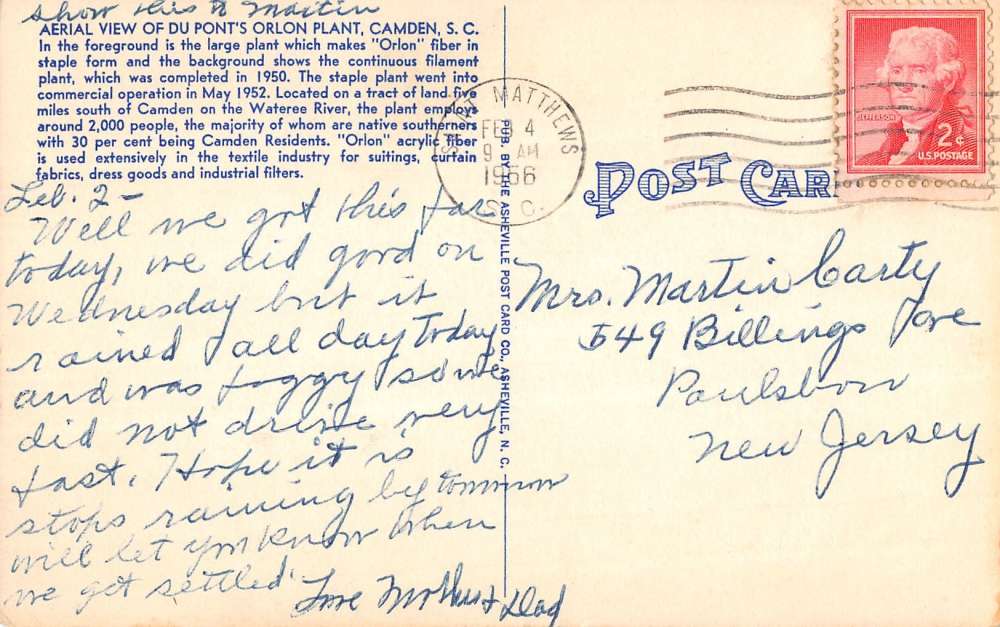 show this to Martin
AERIAL VIEW OF DU PONT'S ORLON PLANT, CAMDEN, S. C.
In the foreground is the large plant which makes "Orlon" fiber in
staple form and the background shows the continuous filament
plant, which was completed in 1950. The staple plant went into
commercial operation in May 1952. Located on a tract of land five
miles south of Camden on the Wateree River, the plant employs
around 2,000 people, the majority of whom are native southerners
with 30 per cent being Camden Residents. "Orlon" acrylic fiber
is used extensively in the textile industry for suitings, curtain
fabrics, dress goods and industrial filters.
Feb. 2 -
Well we got this far
today, we did good on
Wednesday but it
rained all day today
and was foggy some
did not drive very
fast. Hope it is
stops raining by tomorrow
will let you know when
we get settled
Love Mother & Dad
PUB. BY THE ASHEVILLE POST CARD CO., ASHEVILLE, N. C.
ST MATTHEWS
FEB 4
9 AM
1966
S. C.
POST CAR
JEFFERSON
2¢
U.S. POSTAGE
Mrs. Martin Carty
549 Billings Ave
Paulsboro
New Jersey